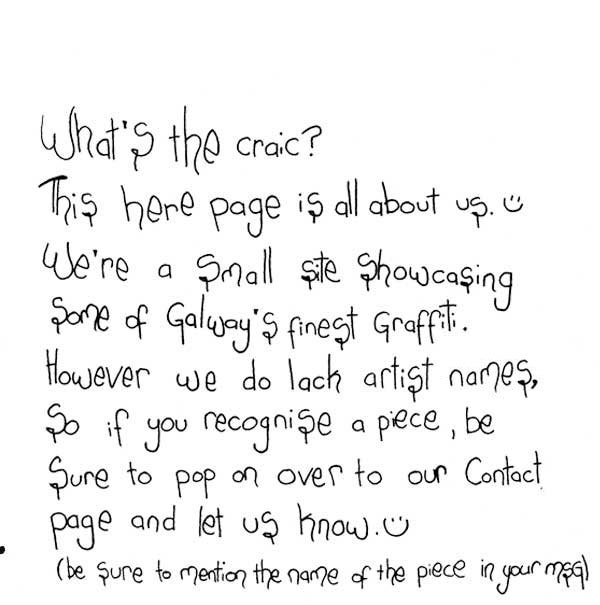 What's the craic?
This here page is all about us. ☺
We're a small site showcasing
some of Galway's finest Graffiti.
However we do lack artist names,
So if you recognise a piece, be
sure to pop on over to our Contact
page and let us know. ☺
(be sure to mention the name of the piece in your msg)